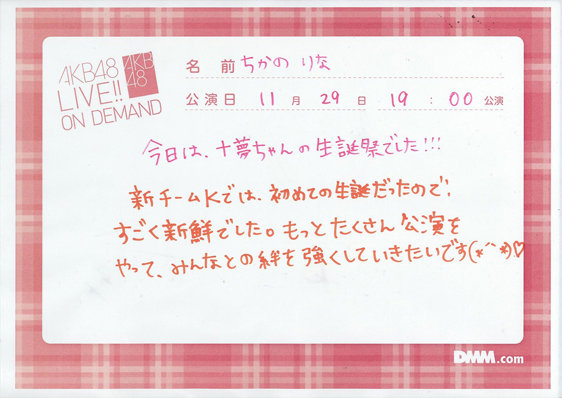 AKB48
LIVE!!
ON DEMAND
AKB
48
名 前 ちかの りな
公演日 11 月 29 日 19 : 00 公演
今日は、十夢ちゃんの生誕祭でした!!!
新チームKでは、初めての生誕だったので、
すごく新鮮でした。もっとたくさん公演を
やって、みんなとの絆を強くしていきたいです(*^^*)♡
DMM.com